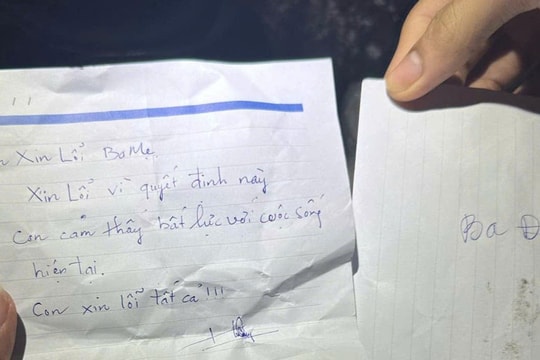 Xin Lổi Ba Mẹ
Xin Lổi vì quyết định này
Con cảm thấy bất lực với cuộc sống
hiện tại.
Con xin lổi tất cả !!!
Ba Đ